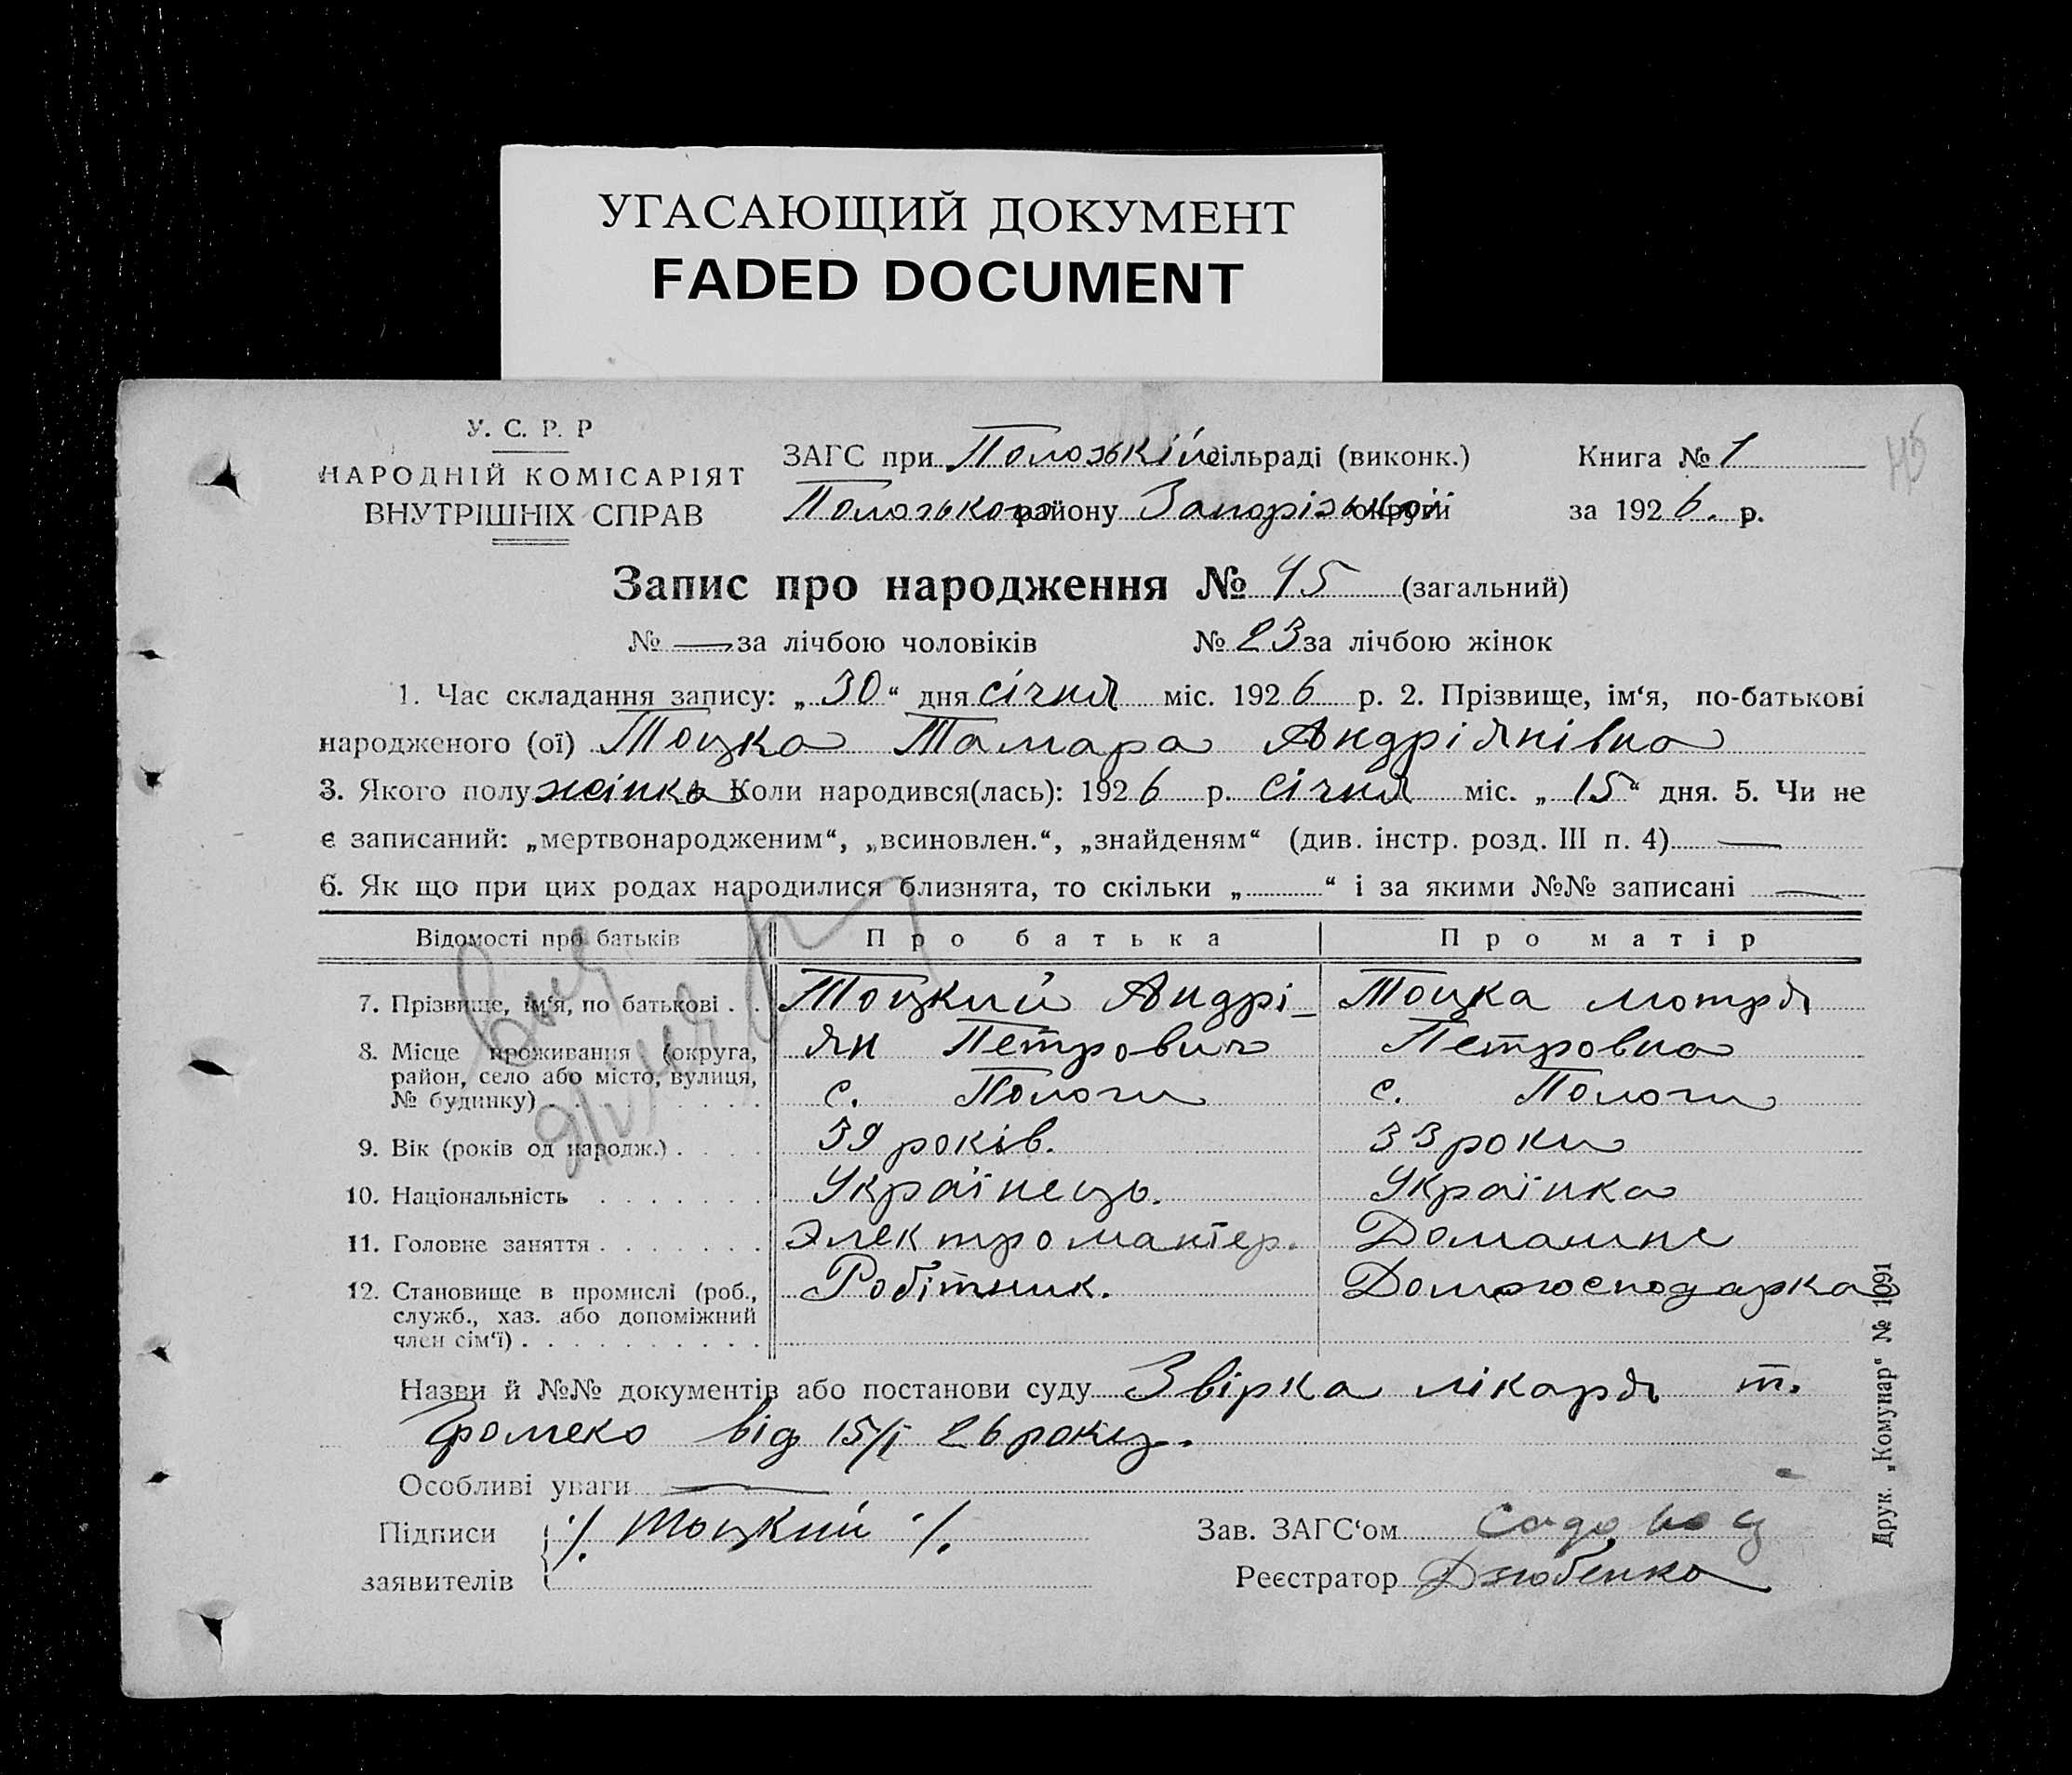 УГАСАЮЩИЙ ДОКУМЕНТ
FADED DOCUMENT
У. С. Р. Р
НАРОДНІЙ КОМІСАРІЯТ
ВНУТРІШНІХ СПРАВ
ЗАГС при Полозькій сільраді (виконк.)
Полозького району Запорізької округи
Книга № 1
за 1926. р.
45
Запис про народження № 45 (загальний)
№ — за лічбою чоловіків № 23 за лічбою жінок
1. Час складання запису: „30“ дня січня міс. 1926 р. 2. Прізвище, ім‘я, по-батькові
народженого (ої) Тоцка Тамара Андріянівна
3. Якого полу жінка Коли народився(лась): 1926 р. січня міс. „15“ дня. 5. Чи не
є записаний: „мертвонародженим“, „всиновлен.“, „знайденям“ (див. інстр. розд. III п. 4) —
6. Як що при цих родах народилися близнята, то скільки „ “ і за якими №№ записані —
Відомості про батьків Про батька Про матір
7. Прізвище, ім‘я, по батькові . . Тоцкий Андрі- Тоцка мотря
ян Петрович Петровна
8. Місце проживання (округа,
район, село або місто, вулиця,
№ будинку) . с. Пологи с. Пологи
9. Вік (років од народж.) . 39 років. 33 роки
10. Національність Українець. Українка
11. Головне заняття Электромантер. Домашнє
12. Становище в промислі (роб.,
служб., хаз. або допоміжний
член сім‘ї) . Робітник. Домгосподарка
Назви й №№ документів або постанови суду Звірка лікаря т.
Громеко від 15/I 26 року.
Особливі уваги —
Підписи
заявителів
·/. Тоцкий ·/.
Зав. ЗАГС‘ом
Реєстратор Дзюбенко
Друк. „Комунар“ № 1091